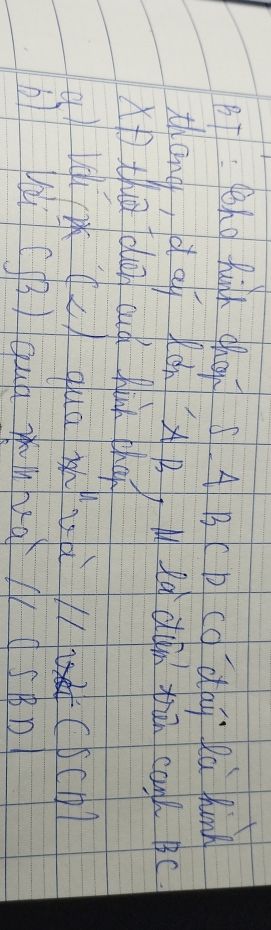 BT : Cho hình chóp S.ABCD có đáy là hình
thang, đáy lớn AB, M là điểm trên cạnh BC.
XĐ thiết diện của hình chóp
a) Với (α) qua M và // (SCD)
b) Với (β) qua M và // (SBD)